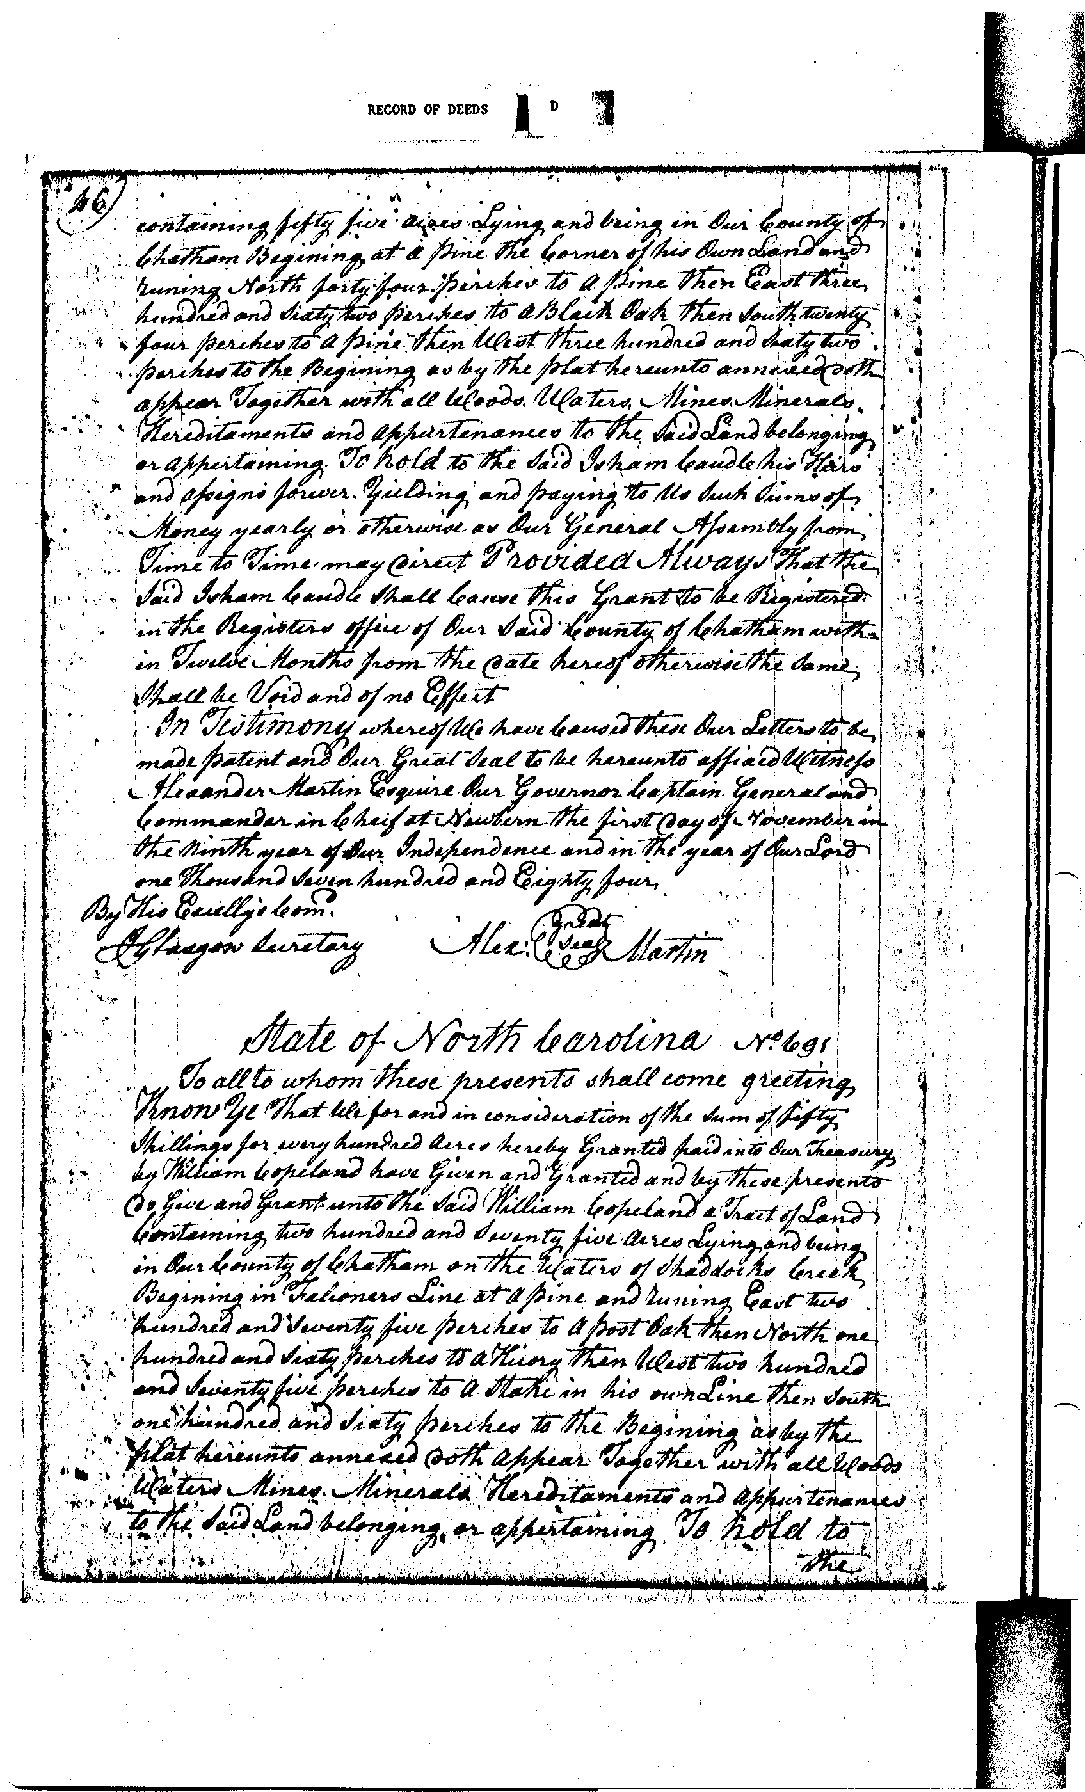 RECORD OF DEEDS D
46
containing fifty five acres Lying and being in Our County of
Chatham Begining at a pine the Corner of his Own Land and
runing North forty four perches to a pine then East three
hundred and Sixty two perches to a Black Oak then South twenty
four perches to a pine then West three hundred and Sixty two
perches to the Begining as by the plat hereunto annexed doth
appear Together with all Woods Waters, Mines Minerals,
Hereditaments and appurtenances to the Said Land belonging
or appertaining To hold to the Said Isham Caudle his Heirs
and assigns forever. Yielding and paying to Us Such Sums of
Money yearly or otherwise as Our General Assembly from
Time to Time may direct Provided Always That the
Said Isham Caudle Shall Cause this Grant to be Registered
in the Registers office of Our Said County of Chatham with-
in Twelve Months from the date hereof otherwise the Same
Shall be Void and of no Effect
In Testimony whereof We have Caused these Our Letters to be
made patent and Our Great Seal to be hereunto affixed Witness
Alexander Martin Esquire Our Governor Captain General and
Commander in Cheif at Newbern the first day of November in
the Ninth year of Our Independence and in the year of Our Lord
one Thousand Seven hundred and Eighty four,
By His Excelly's Comd.
J Glasgow Secretary Alex: Great Seal Martin
State of North Carolina No. 691
To all to whom these presents shall come greeting
Know Ye That We for and in consideration of the Sum of fifty
Shillings for every hundred Acres hereby Granted paid into Our Treasury
by William Copeland have Given and Granted and by these presents
do Give and Grant unto the Said William Copeland a Tract of Land
Containing two hundred and Seventy five Acres Lying and being
in Our County of Chatham on the Waters of Shaddocks Creek
Begining in Falconers Line at a pine and runing East two
hundred and Seventy five perches to a post Oak then North one
hundred and Sixty perches to a Hicory then West two hundred
and Seventy five perches to a Stake in his own Line then South
one hundred and Sixty perches to the Begining as by the
plat hereunto annexed doth appear Together with all Woods
Waters Mines Minerals Hereditaments and appurtenances
to the Said Land belonging or appertaining To hold to
the